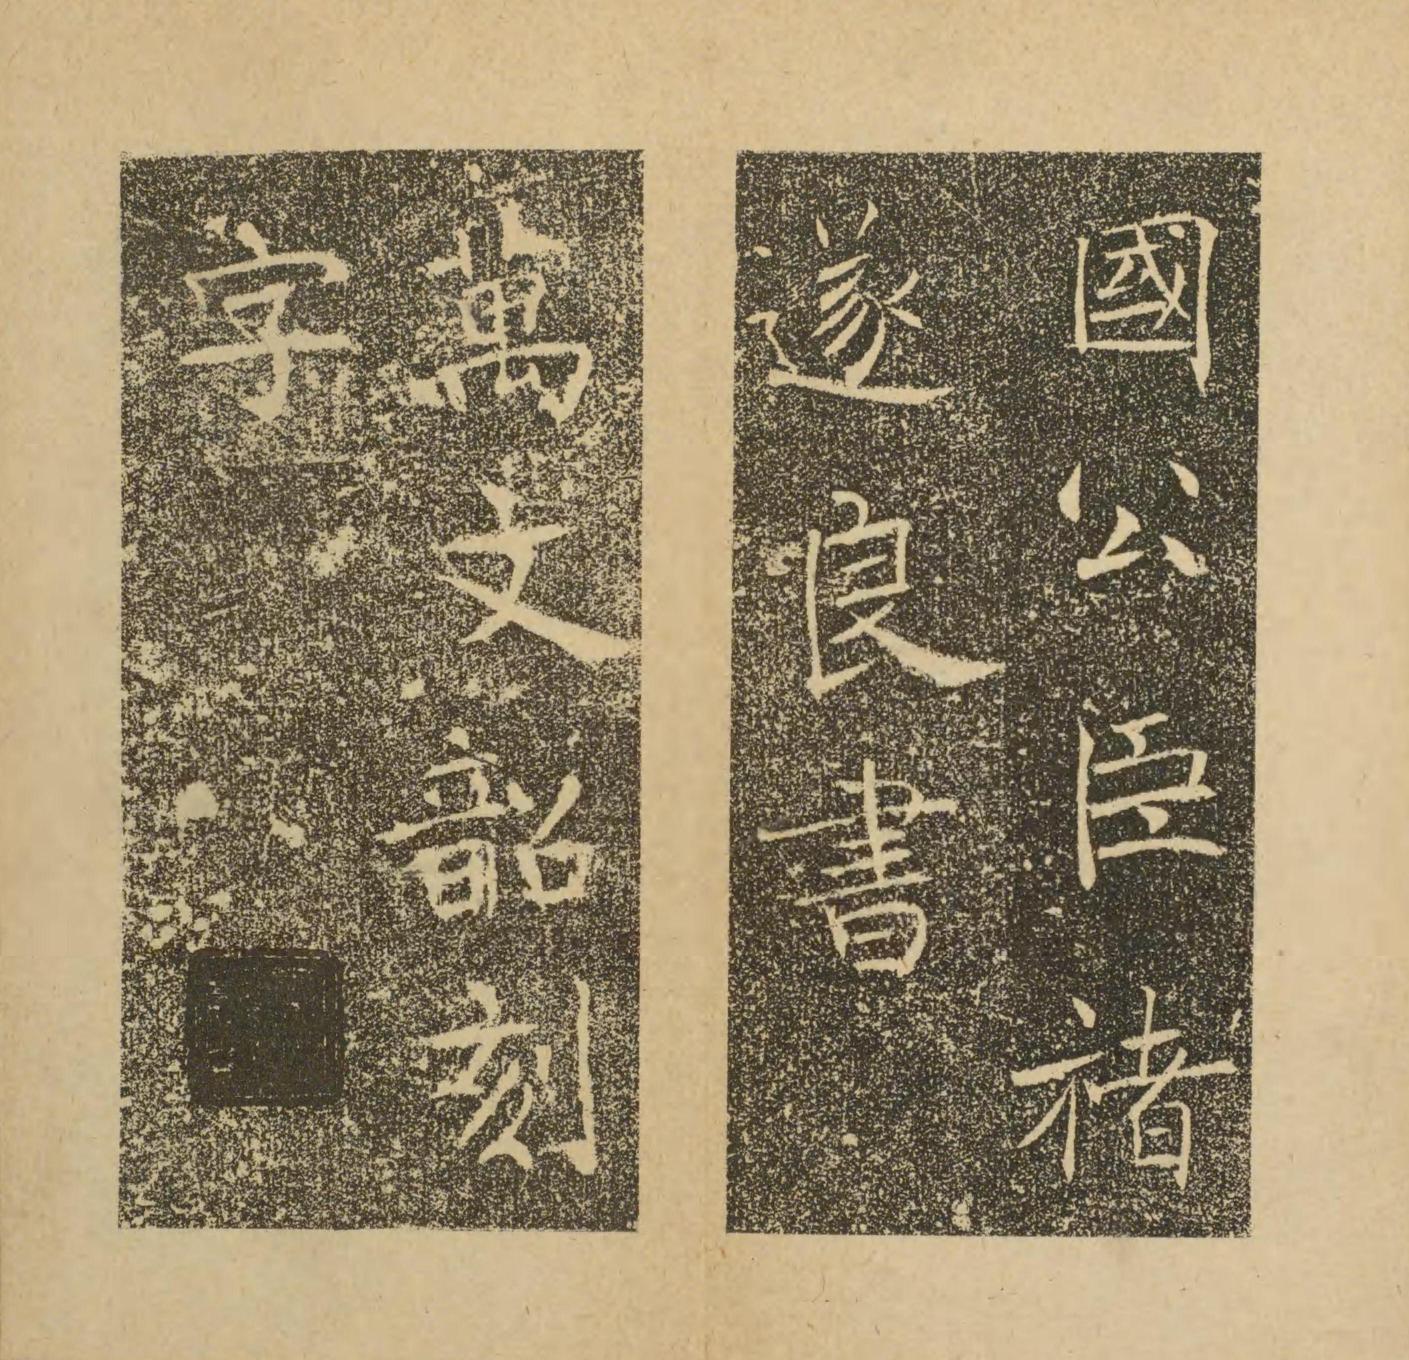 國公臣褚
遂良書
萬文韶刻
字